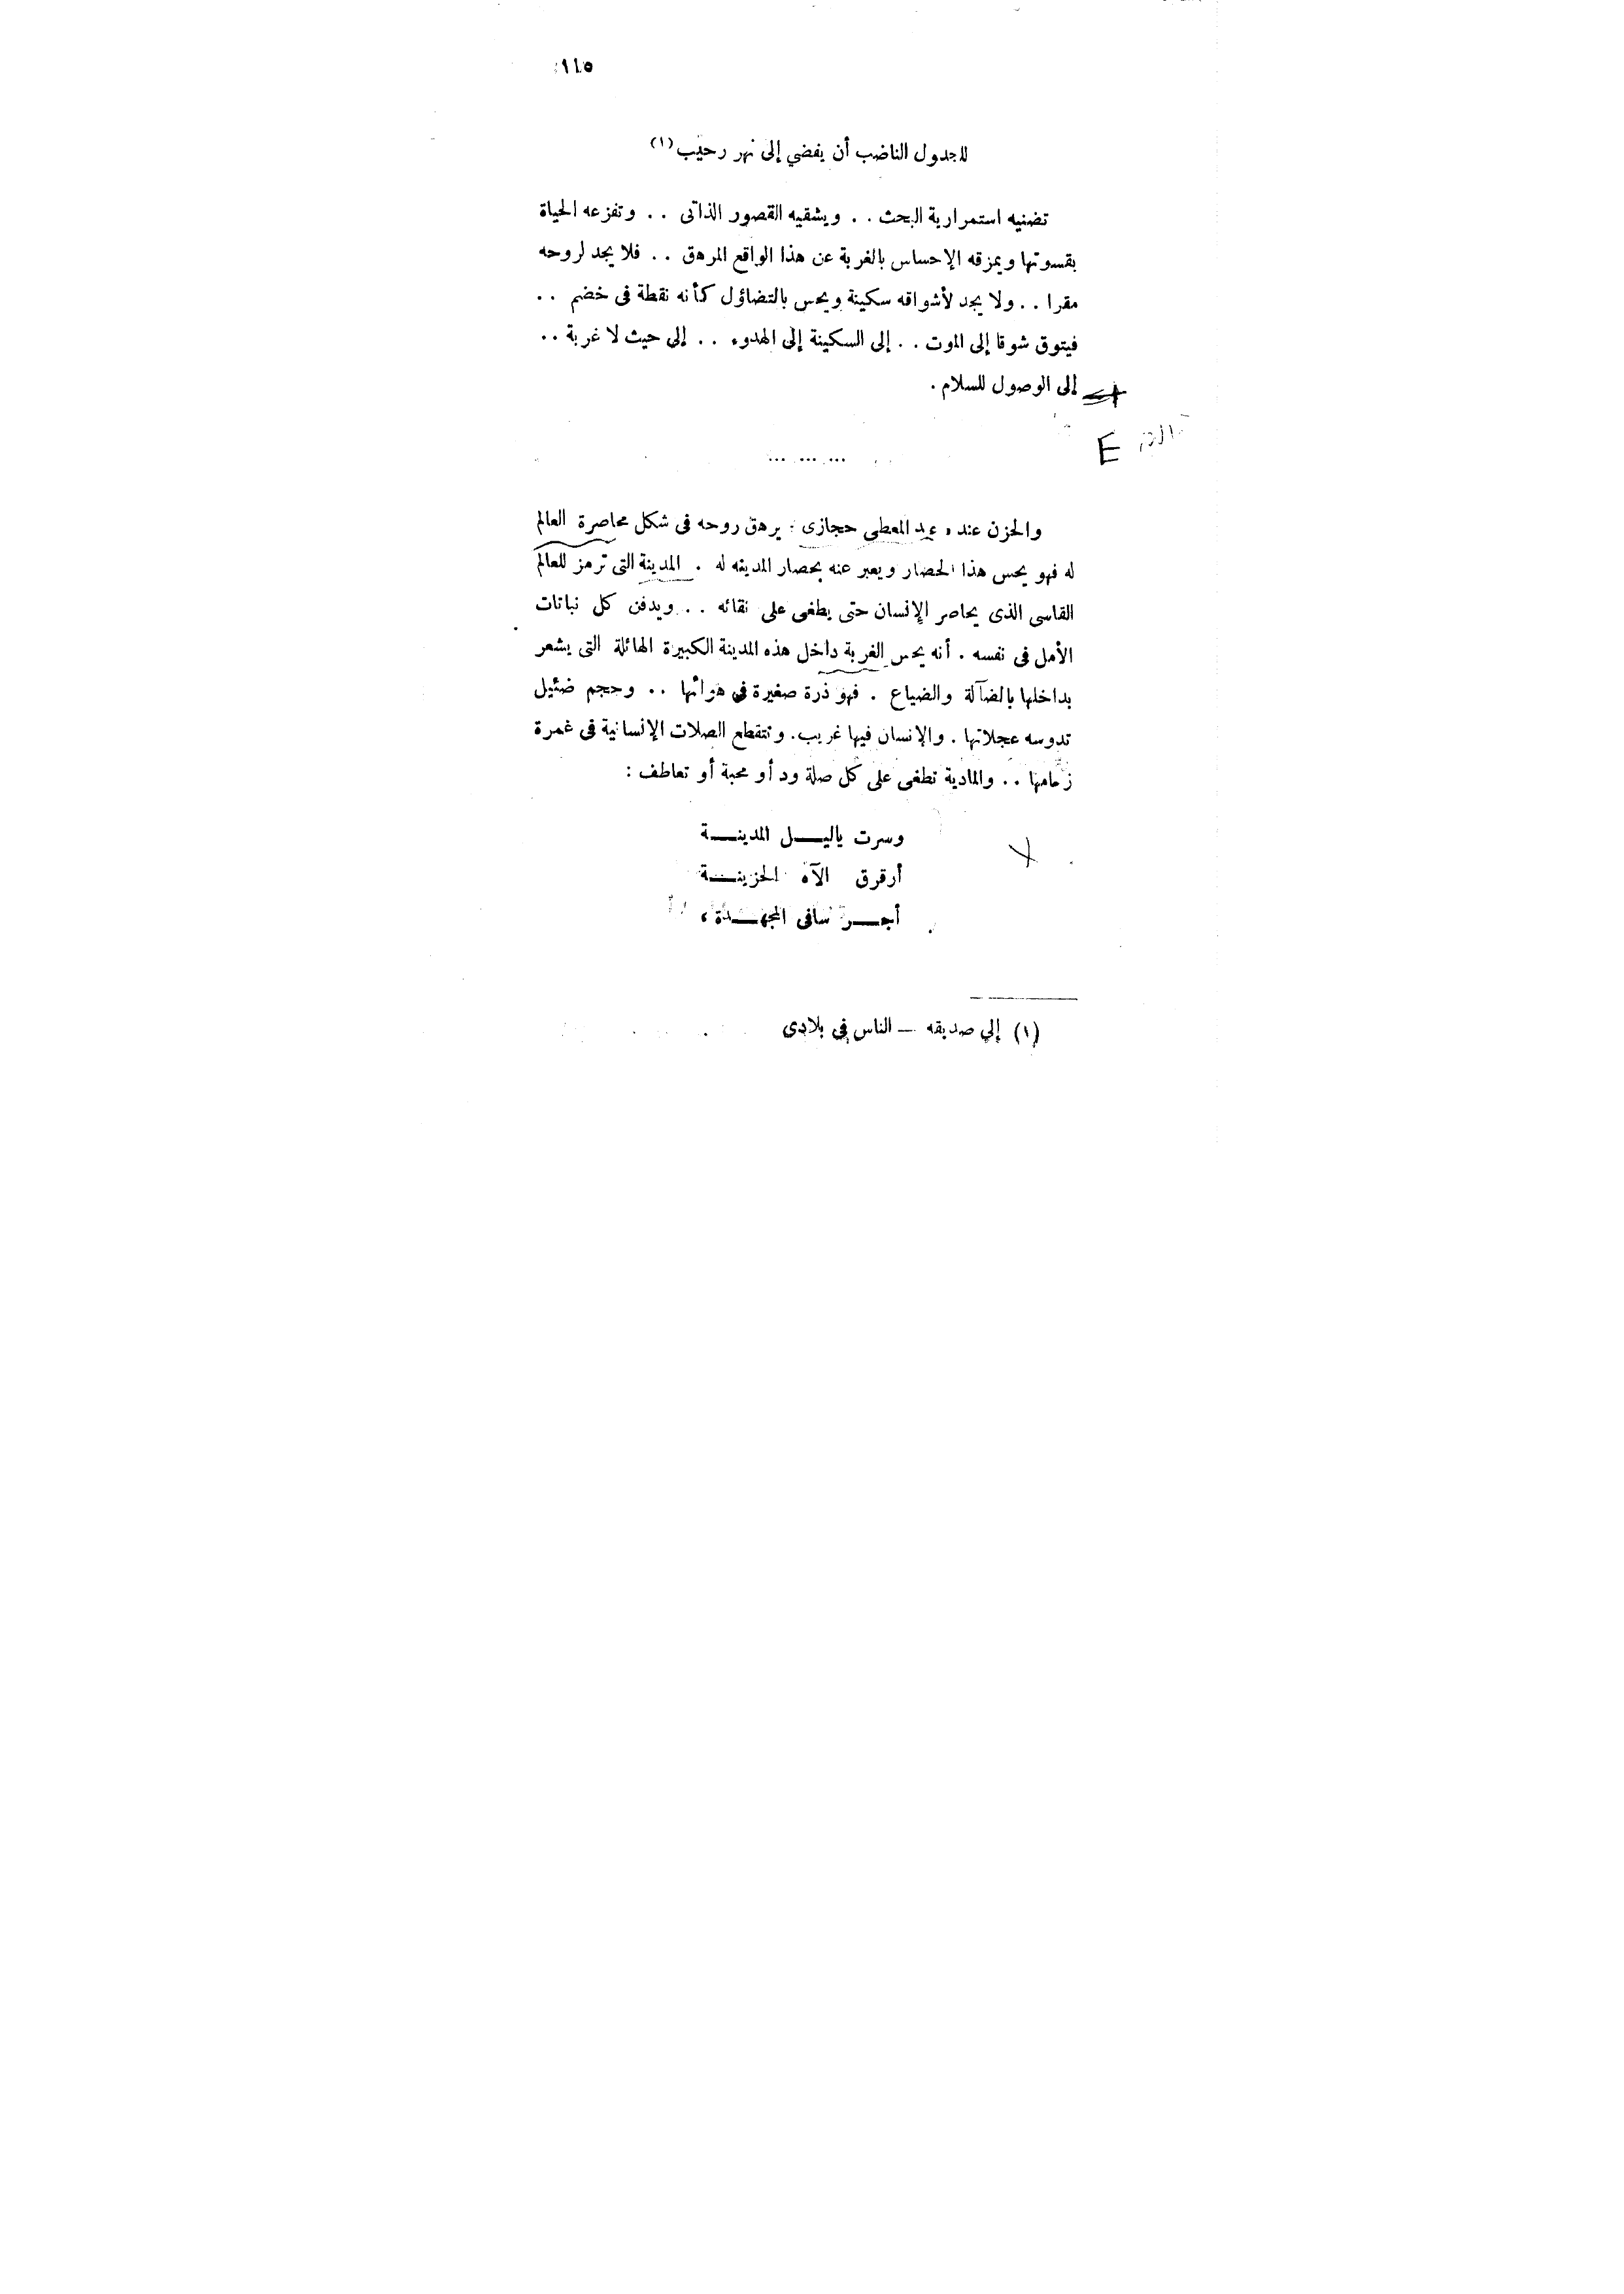 ١١٥
للجدول الناضب أن يفضي إلى نهر رحيب (١)
تضنيه استمرارية البحث . . ويشقيه القصور الذاتى . . وتفزعه الحياة
بقسوتها ويمزقه الإحساس بالغربة عن هذا الواقع المرهق . . فلا يجد لروحه
مقرا . . ولا يجد لأشواقه سكينة ويحس بالتضاؤل كأنه نقطة فى خضم . .
فيتوق شوقا إلى الموت . . إلى السكينة إلى الهدوء . . إلي حيث لا غربة . .
إلى الوصول للسلام .
E
... ... ...
والحزن عند « عبد المعطى حجازى » يرهق روحه فى شكل محاصرة العالم
له فهو يحس هذا الحصار ويعبر عنه بحصار المدينه له . المدينة التى ترمز للعالم
القاسى الذى يحاصر الإنسان حتى يطغى على نقائه . . ويدفن كل نباتات
الأمل فى نفسه . أنه يحس الغربة داخل هذه المدينة الكبيرة الهائلة التى يشعر
بداخلها بالضآلة والضياع . فهو ذرة صغيرة فى هوائها . . وحجم ضئيل
تدوسه عجلاتها . والإنسان فيها غريب. وتتقطع الصلات الإنسانية فى غمرة
زحامها . . والمادية تطغى على كل صلة ود أو محبة أو تعاطف :
وسرت ياليـــل المدينـــة
أرقرق الآه الحزينـــة
أجـــر ساقى المجهـــدة ،
(١) إلي صديقه — الناس في بلادى